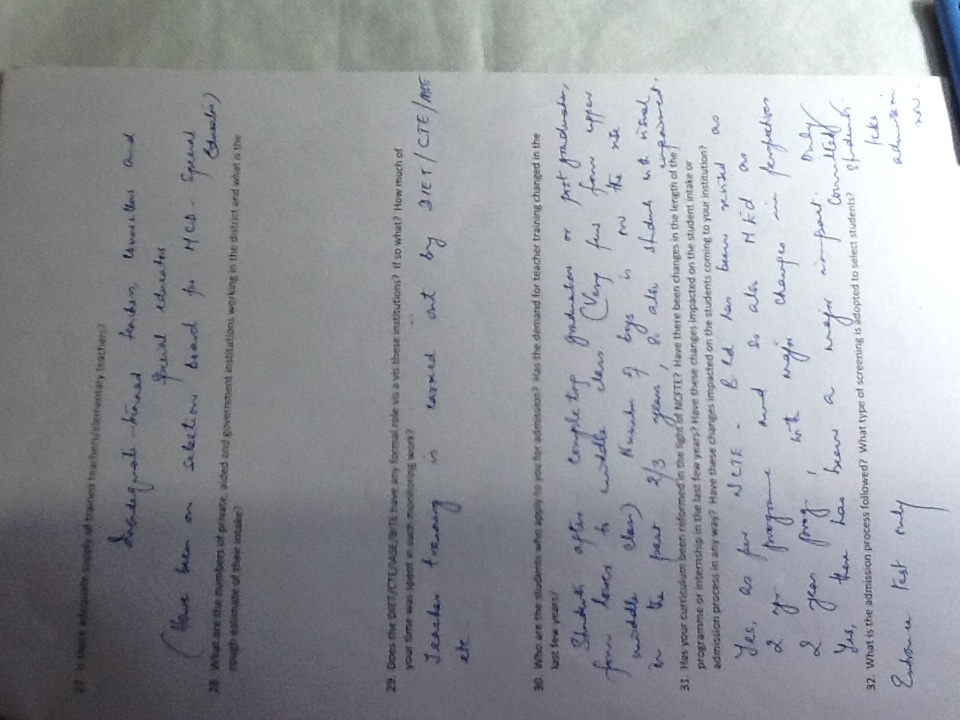 27. Is there adequate supply of trained teachers/elementary teachers?
Inadequate trained teachers, counsellors and
special educators
(Have been on selection board for MCD - Special
Educators)
28. What are the numbers of private, aided and government institutions working in the district and what is the
rough estimate of their intake?
29. Does the DIET/CTE/IASE/BITE have any formal role vis a vis these institutions? If so what? How much of
your time was spent in such monitoring work?
Teacher training is carried out by DIET/CTE/
etc.
30. Who are the students who apply to you for admission? Has the demand for teacher training changed in the
last few years?
Students after completing graduation or post graduation,
from lower to middle class (Very few from upper
middle class) Number of boys is on the rise
in the past 2/3 years, so also students with visual
impairment.
31. Has your curriculum been reformed in the light of NCFTE? Have there been changes in the length of the
programme or internship in the last few years? Have these changes impacted on the student intake or
admission process in any way? Have these changes impacted on the students coming to your institution?
Yes, as per NCTE - B Ed has been revised as
2 yr programme and so also M Ed as
2 year prog, with major changes in perspectives
Yes, there has been a major impact. Only
committed
students
take
admission
now.
32. What is the admission process followed? What type of screening is adopted to select students?
Entrance Test only